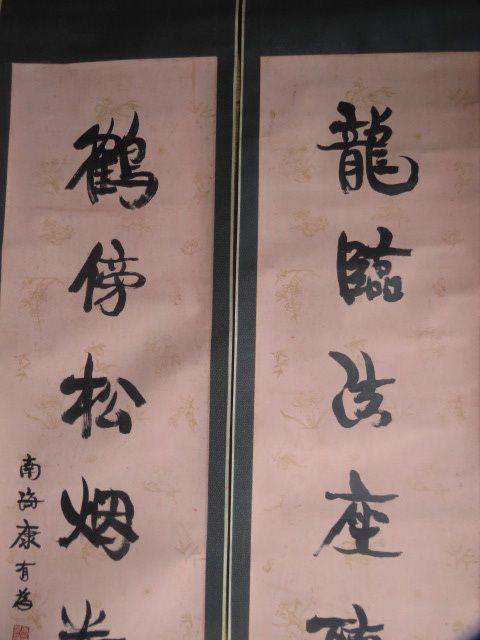 龍臨法座
鶴傍松烟
南海康有為